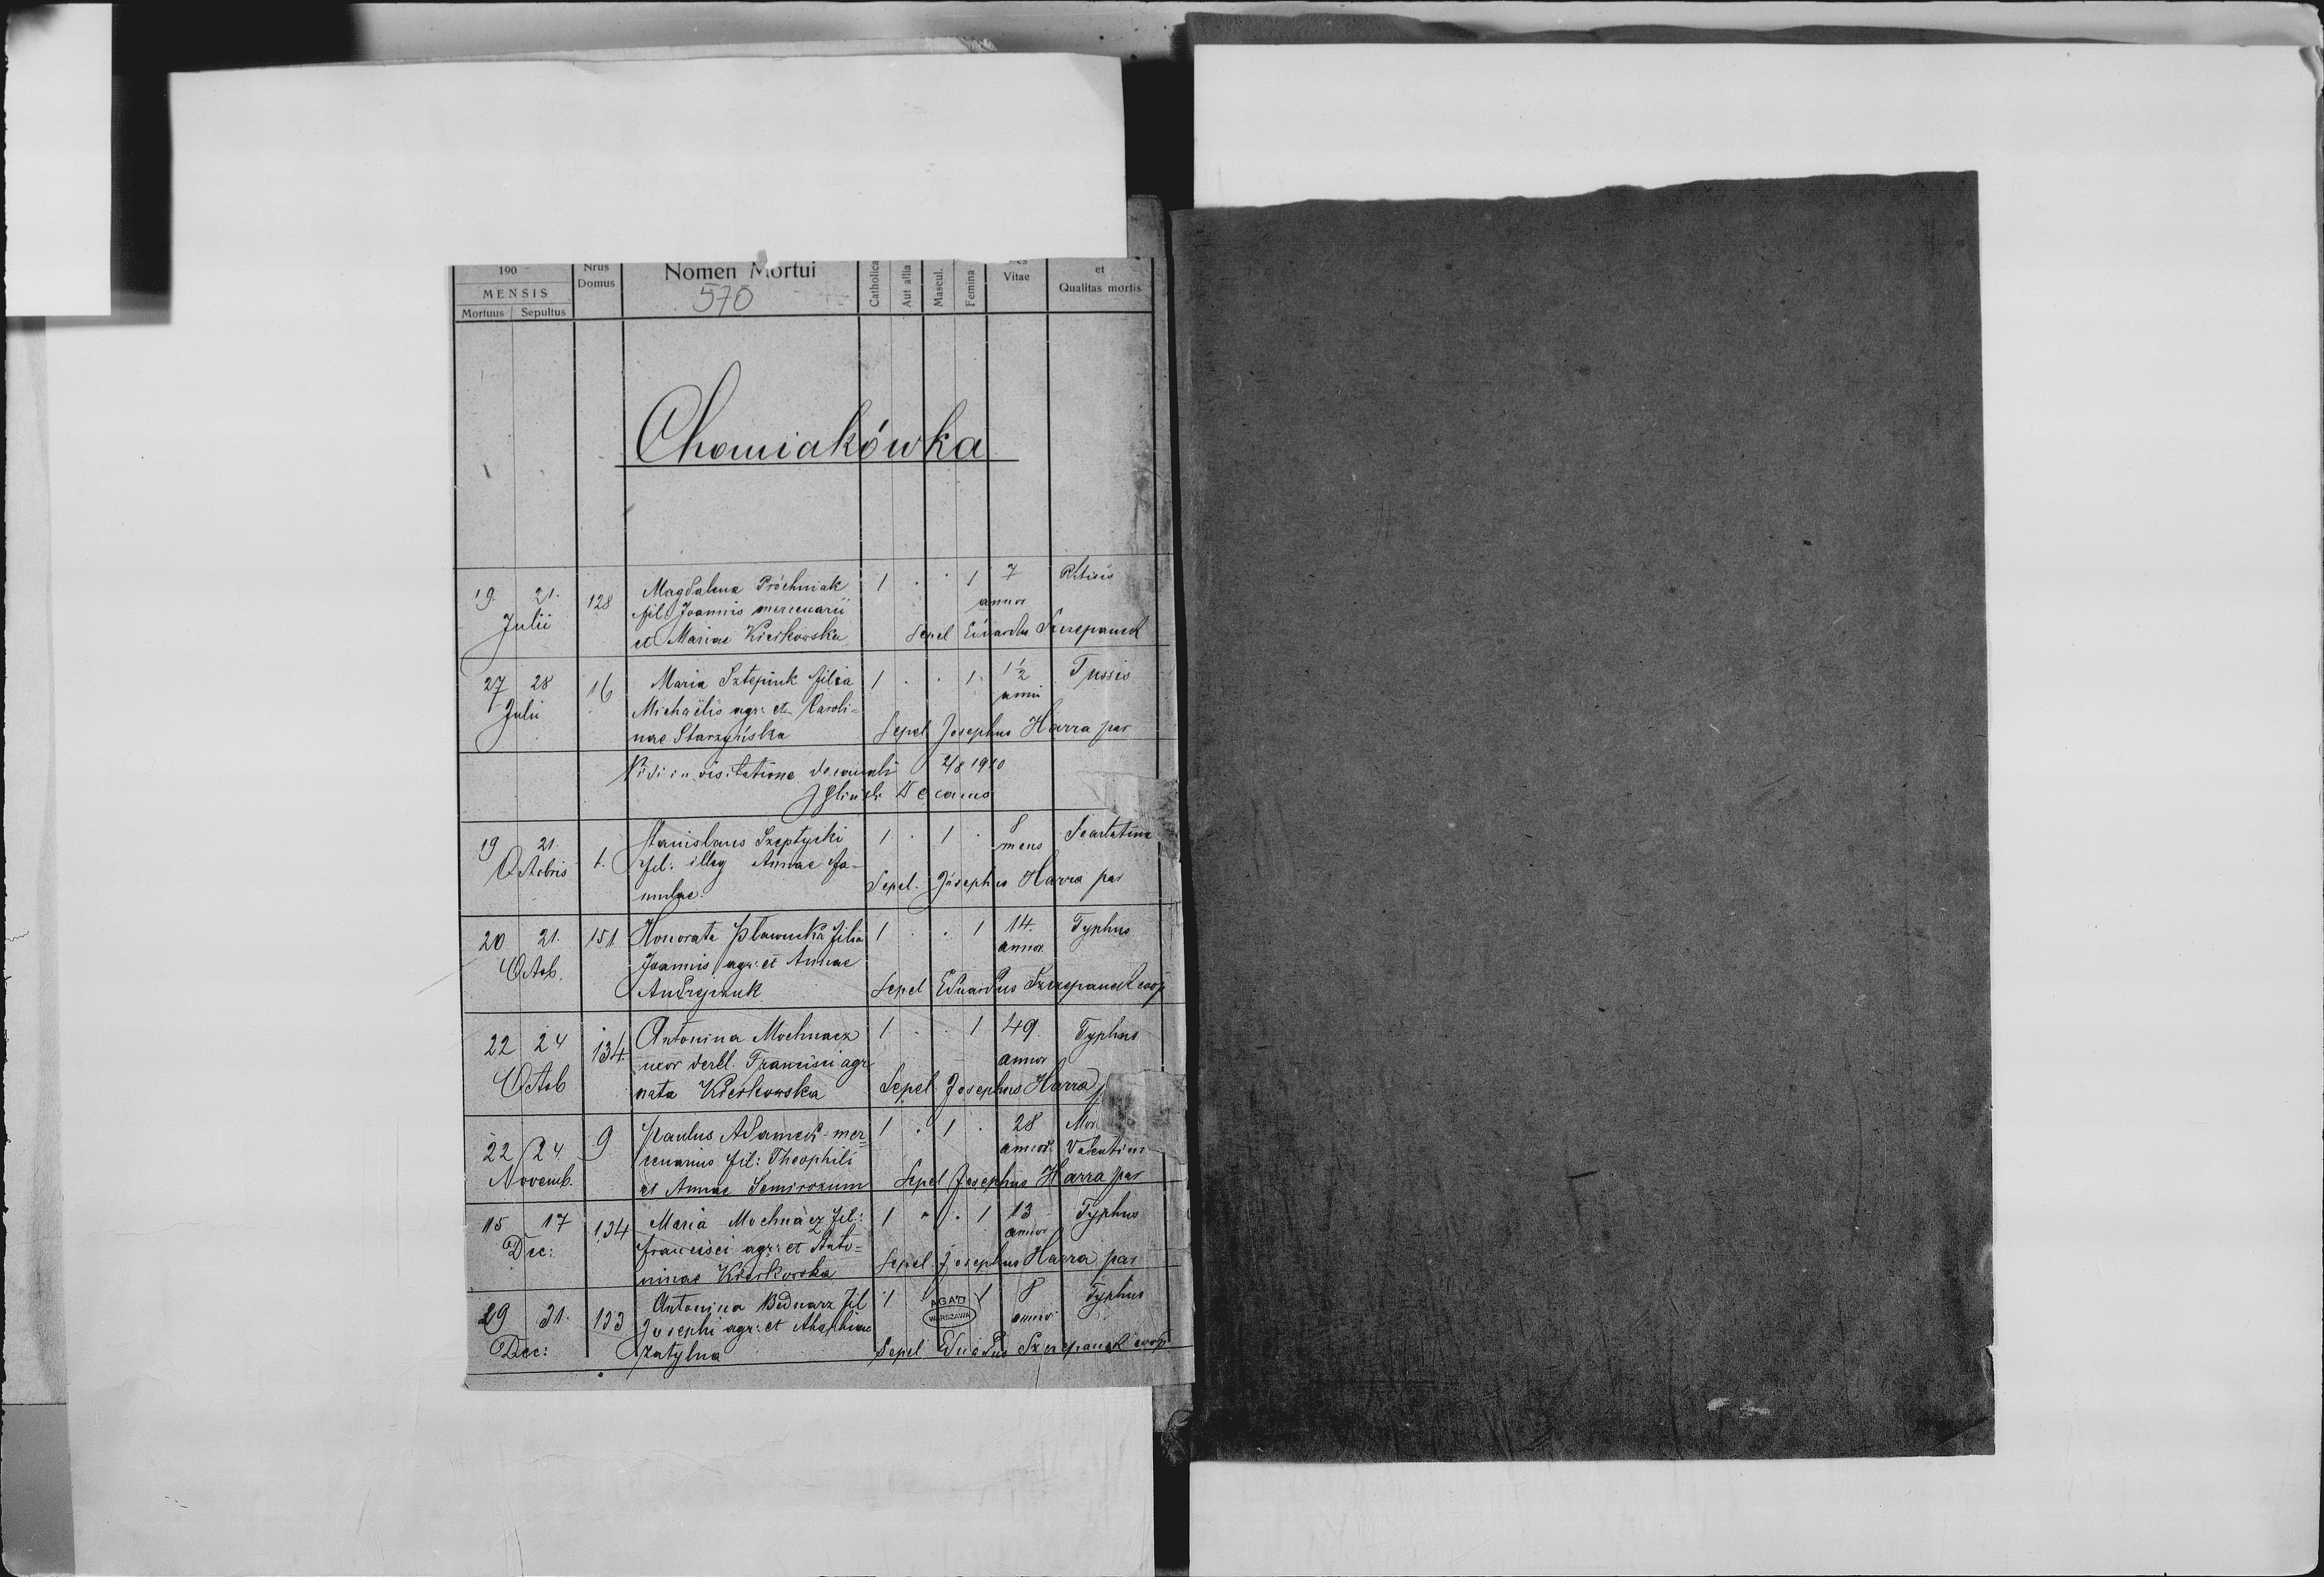 190
MENSIS
Mortuus Sepultus
Nrus Domus
Nomen Mortui
570
Catholica
Aut allia
Mascul.
Femina
Vitae
et
Qualitas mortis
Chomiakówka
19 21. 128 Magdalena Próchniak 1 . . 1 7
Julii fil. Joannis mercenarii annor
et Mariae Kierkowska Sepel Eduardus Szczepanek
27 28 16 Maria Sztepiuk filia 1 . . 1 1 1/2 Tussis
Julii Michaëlis agr: et Karoli= anni
nae Starzyńska Sepel Josephus Harra par
Vidi in visitatione decanali 2/8 1910
Decanus
19 21. 1. Stanislaus Szeptycki 1 . 1 . 8 Scarlatina
Octobris fil: illeg Annae fa- mens
mulae. Sepel. Josephus Harra par
20 21. 151 Honorata Sławucka filia 1 . . 1 14. Typhus
Octob. Joannis agr: et Annae annor
Andrejczuk Sepel Eduardus Szczepanek coop
22 24 134. Antonina Mochnacz 1 . . 1 49 Typhus
Octob uxor derel. Francisci agr annor
nata Kierkowska Sepel Josephus Harra
22 24 9 Paulus Adamek mer= 1 . 1 . 28 Mor
Novemb. cenarius fil: Theophili annor
et Annae Semirozum Sepel Josephus Harra par
15 17 134 Maria Mochnacz fil: 1 . . 1 13 Typhus
Dec: Francisci agr: et Anto= annor
ninae Kierkowska Sepel. Josephus Harra par
29 31. 133 Antonina Bednarz fil 1 1 8 Typhus
Dec: Josephi agr: et annor
Zatylna Sepel Szczepanek coop
AGAD
WARSZAWA